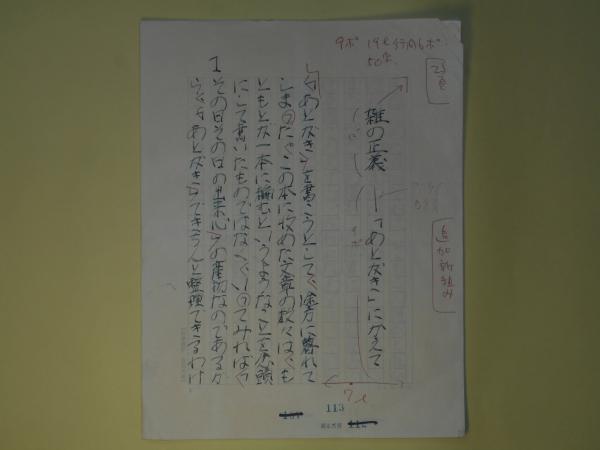 9ポ 19字 行間6ポ
50字
追加新組み
雑の正義 ──「あとがき」にかえて
「あとがき」を書こうとして、途方に暮れて
しまった。この本に収めた文章の数々は、も
ともと一本に編むというようなことを念頭
にして書いたものではない。いってみれば、
その日その日の
の産物なのである。
「あとがき」できちんと整理できるわけ
7行
113